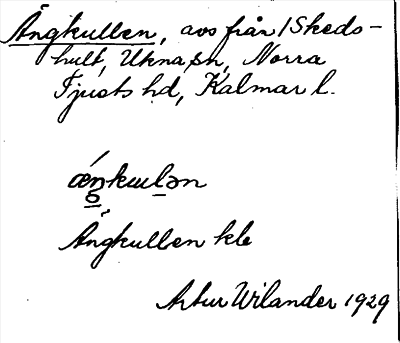 Ängkullen, avs från 1 Skeds-
hult, Ukna sn, Norra
Tjusts hd, Kalmar l.
Ängkullen kle
Artur Wilander 1929